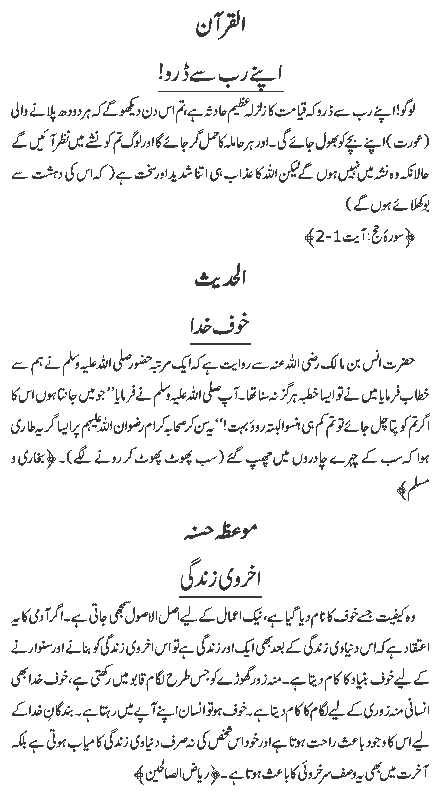 القرآن
اپنے رب سے ڈرو!
لوگو! اپنے رب سے ڈرو کہ قیامت کا زلزلہ عظیم حادثہ ہے، تم اس دن دیکھو گے کہ ہر دودھ پلانے والی
(عورت) اپنے بچے کو بھول جائے گی۔ اور ہر حاملہ کا حمل گر جائے گا اور لوگ تم کو نشے میں نظر آئیں گے
حالانکہ وہ نشہ میں نہیں ہوں گے لیکن اللہ کا عذاب ہی اتنا شدید اور سخت ہے (کہ اس کی دہشت سے
بوکھلائے ہوں گے)
﴿سورۂ حج: آیت 1-2﴾
الحدیث
خوف خدا
حضرت انس بن مالک رضی اللہ عنہ سے روایت ہے کہ ایک مرتبہ حضور صلی اللہ علیہ وسلم نے ہم سے
خطاب فرمایا میں نے تو ایسا خطبہ ہرگز نہ سنا تھا۔ آپ صلی اللہ علیہ وسلم نے فرمایا ’’جو میں جانتا ہوں اس کا
اگر تم کو پتا چل جائے تو تم کم ہی ہنسو البتہ روؤ بہت!‘‘ یہ سن کر صحابہ کرام رضوان اللہ علیہم پر ایسا گریہ طاری
ہوا کہ سب کے چہرے چادروں میں چھپ گئے (سب پھوٹ پھوٹ کر رونے لگے)۔ ﴿بخاری و
مسلم﴾
موعظہ حسنہ
اخروی زندگی
وہ کیفیت جسے خوف کا نام دیا گیا ہے، نیک اعمال کے لیے اصل الاصول سمجھی جاتی ہے۔ اگر آدمی کا یہ
اعتقاد ہے کہ اس دنیاوی زندگی کے بعد بھی ایک اور زندگی ہے تو اس اخروی زندگی کو بنانے اور سنوارنے
کے لیے خوف بنیاد کا کام دیتا ہے۔ منہ زور گھوڑے کو جس طرح لگام قابو میں رکھتی ہے، خوف خدا بھی
انسانی منہ زوری کے لیے لگام کا کام دیتا ہے۔ خوف ہو تو انسان اپنے آپے میں رہتا ہے۔ بندگانِ خدا کے
لیے اس کا وجود باعث راحت ہوتا ہے اور خود اس شخص کی نہ صرف دنیاوی زندگی کامیاب ہوتی ہے بلکہ
آخرت میں بھی یہ وصف سرخروئی کا باعث ہوتا ہے۔ ﴿ریاض الصالحین﴾